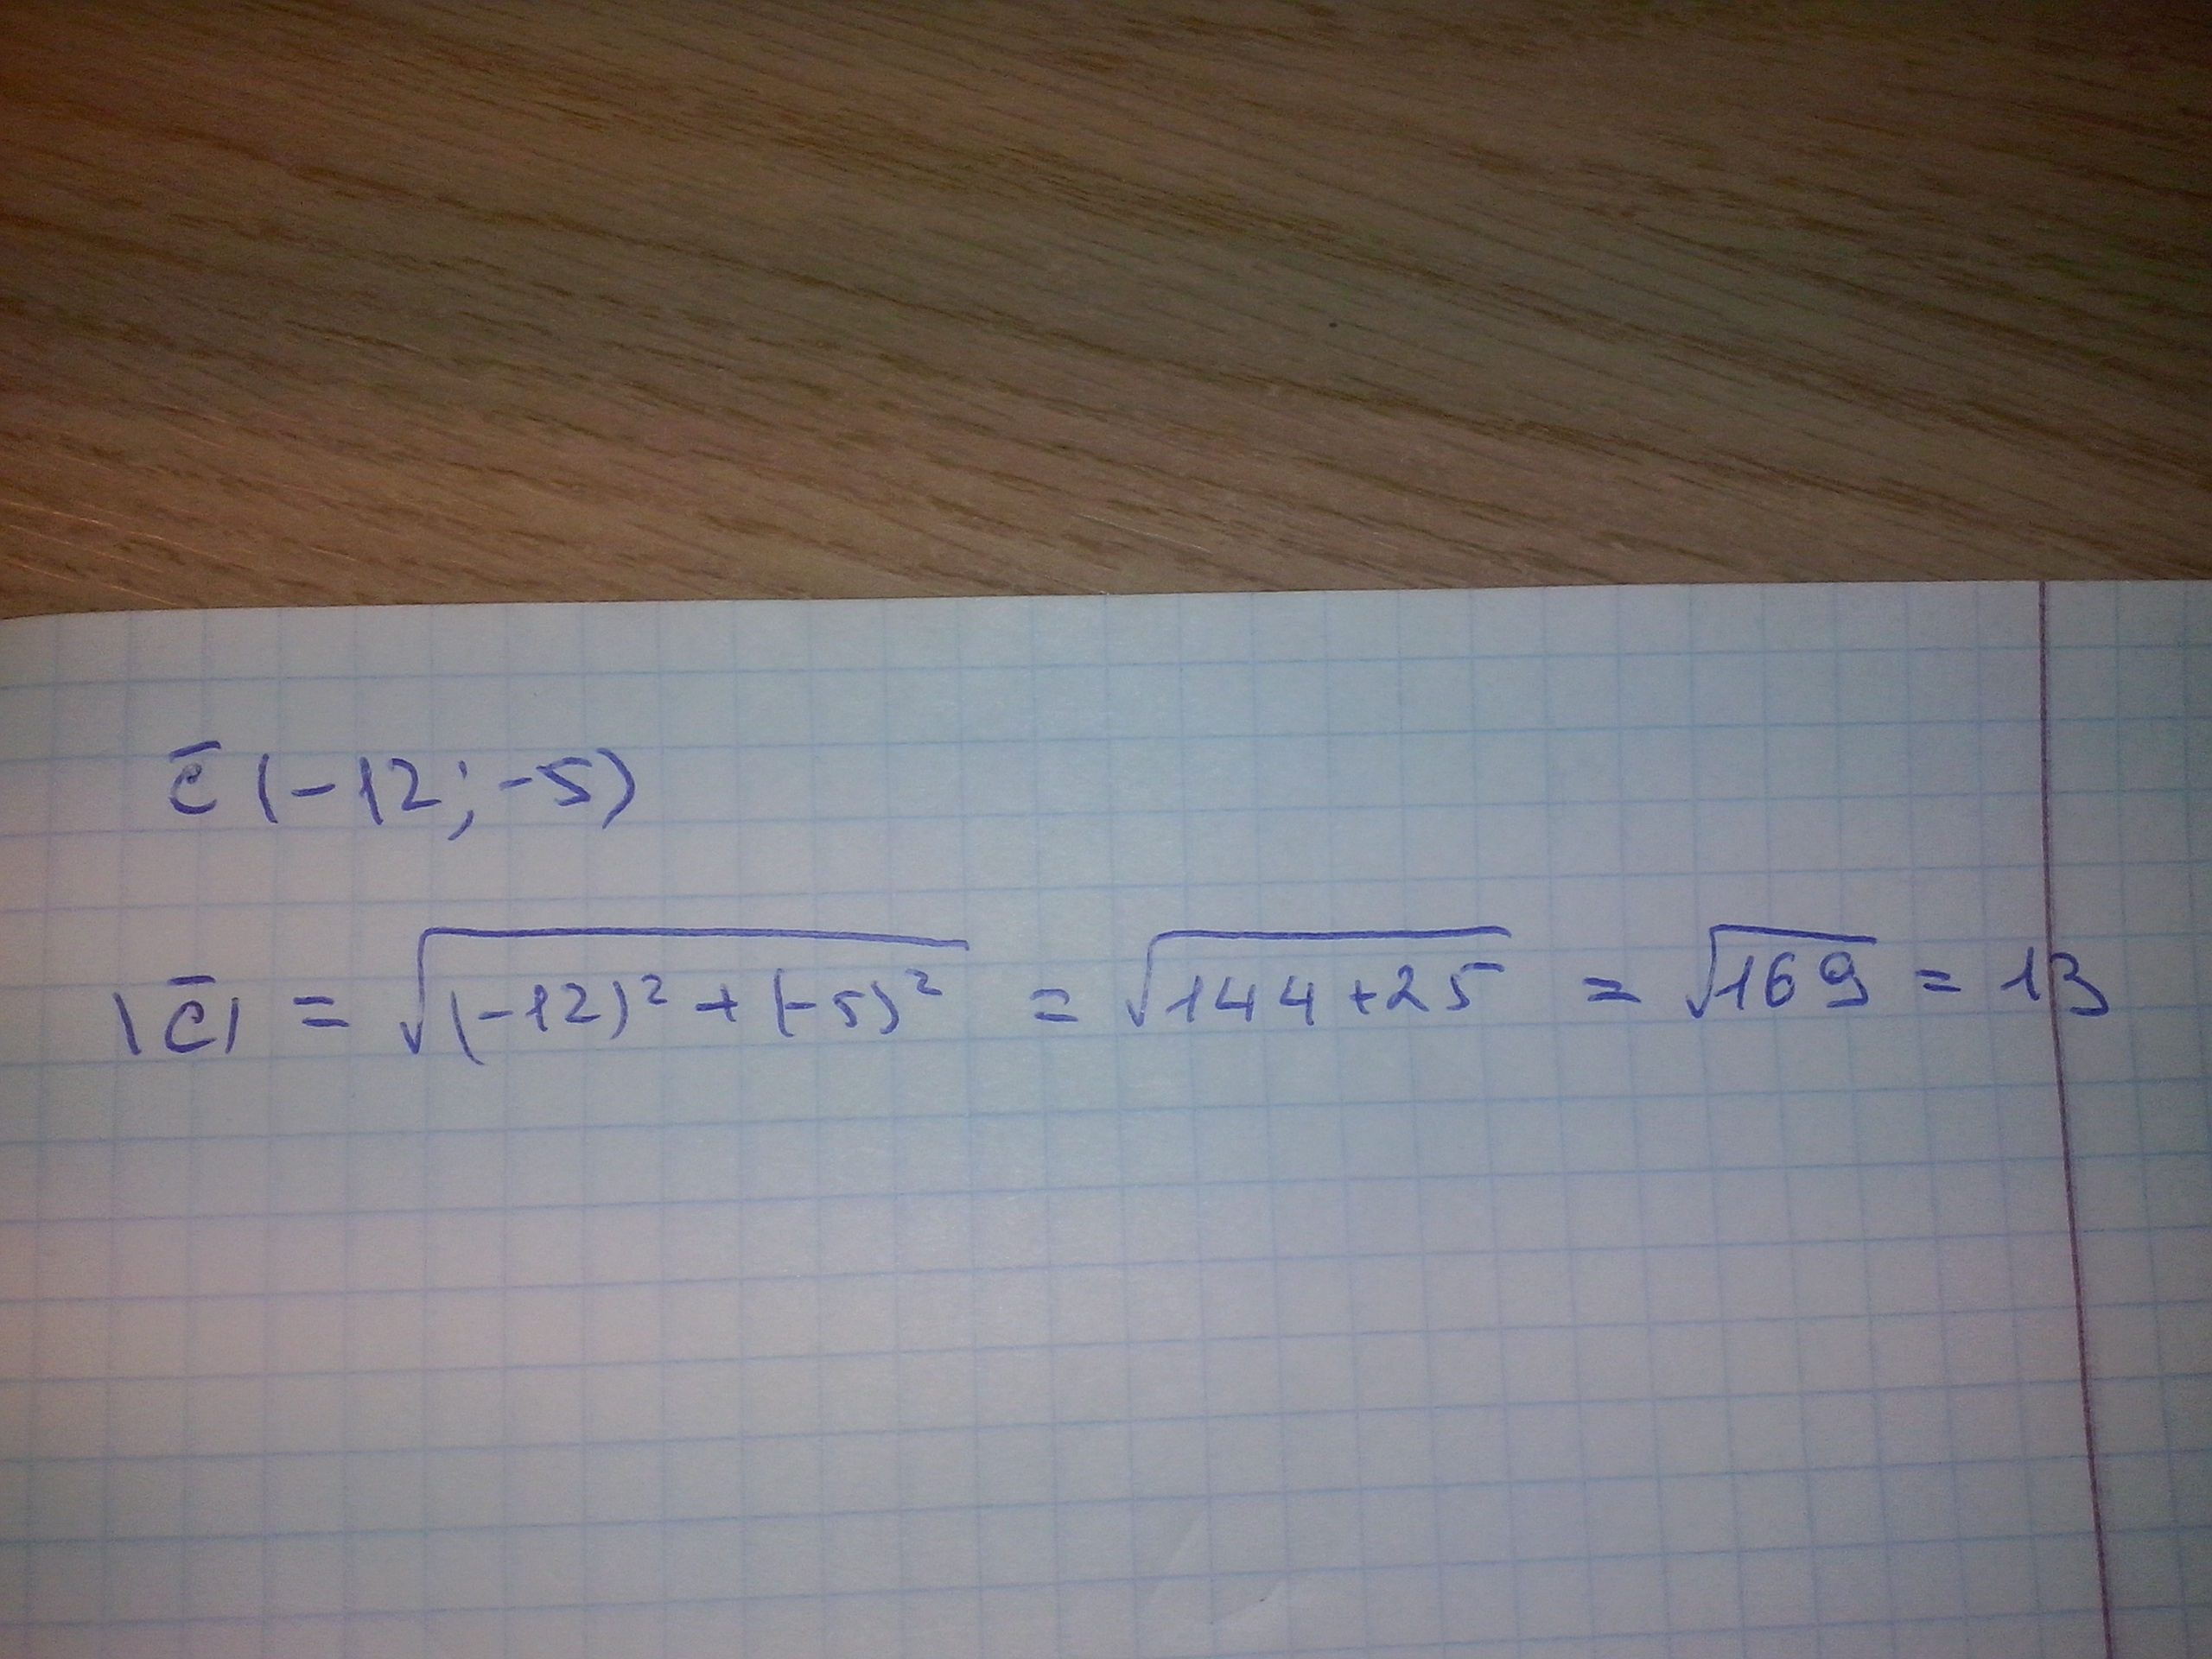 c̅ (-12; -5)
|c̅| = √((-12)² + (-5)²) = √(144+25) = √169 = 13